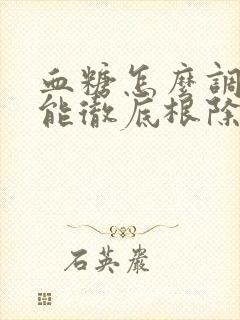 血糖怎麼調
能徹底根除
石英嚴